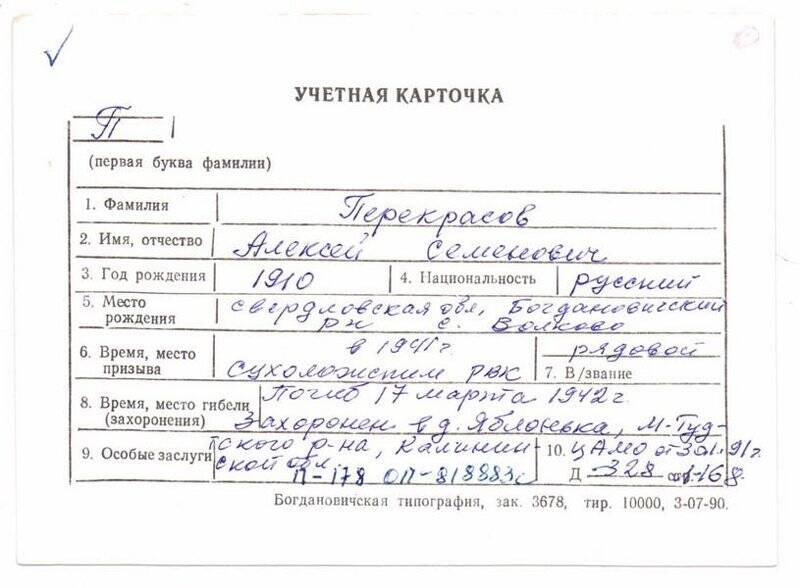 УЧЕТНАЯ КАРТОЧКА
П
(первая буква фамилии)
1. Фамилия Перекрасов
2. Имя, отчество Алексей Семенович
3. Год рождения 1910 4. Национальность русский
5. Место рождения Свердловская обл, Богдановичский
рн с. Волково
6. Время, место призыва в 1941г.
Сухоложским РВК
рядовой
7. В/звание
8. Время, место гибели (захоронения) Погиб 17 марта 1942г.
Захоронен в д. Яблонька, М-Туд-
тского р-на, Калинин-
ской обл.
9. Особые заслуги П-178 ОП-818883с
10. ЦАМО от 91г.
Д 328
Богдановичская типография, зак. 3678, тир. 10000, 3-07-90.